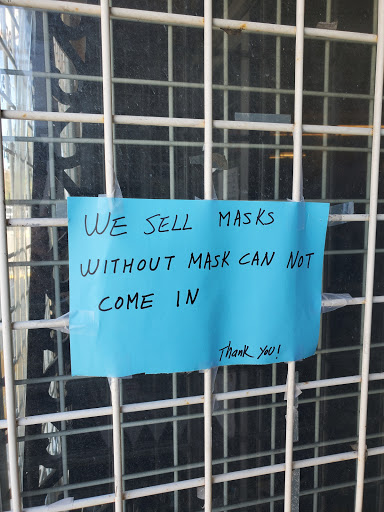 WE SELL MASKS
WITHOUT MASK CAN NOT
COME IN
Thank You!